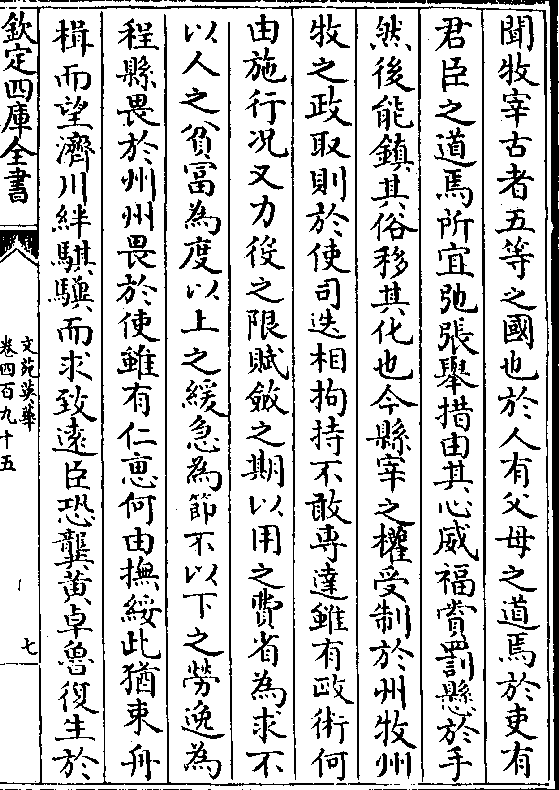 聞牧宰古者五等之國也於人有父母之道焉於吏有
君臣之道焉所宜弛張舉措由其心威福賞罰懸於手
然後能鎮其俗移其化也今縣宰之權受制於州牧州
牧之政取則於使司迭相拘持不敢專達雖有政術何
由施行况又力役之限賦斂之期以用之費省為求不
以人之貧富為度以上之緩急為節不以下之勞逸為
程縣畏於州州畏於使雖有仁惠何由撫綏此猶束舟
楫而望濟川絆騏驥而求致遠臣恐龔黃卓魯復生於
欽定四庫全書
文苑英華
卷四百九十五
七